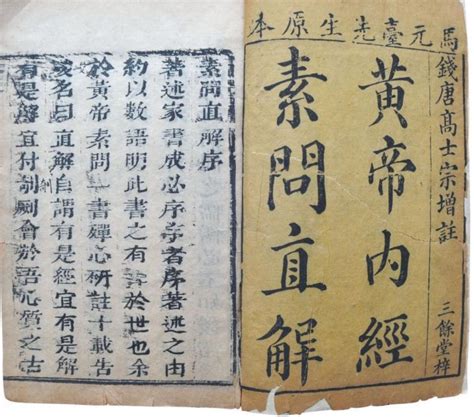 馬元臺先生原本
錢唐高士宗增註
黃帝內經
素問直解
三餘堂梓
素問直解序
著述家書成必序序者序著述之由
約以數語明此書之有於世也余
於黃帝素問一書殫心研註十載告
名曰直解自謂有是經宜有是解
有是解宜付剞劂會於吾心質之古